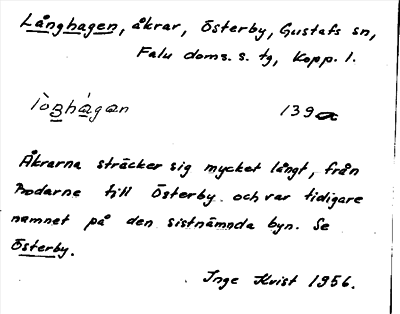 Långhagen, åkrar, Österby, Gustafs sn,
Falu doms. s. tg, Kopp. l.
139
Åkrarna sträcker sig mycket långt, från
Bodarne till Österby och var tidigare
namnet på den sistnämnda byn. Se
Österby.
Inge Kvist 1956.